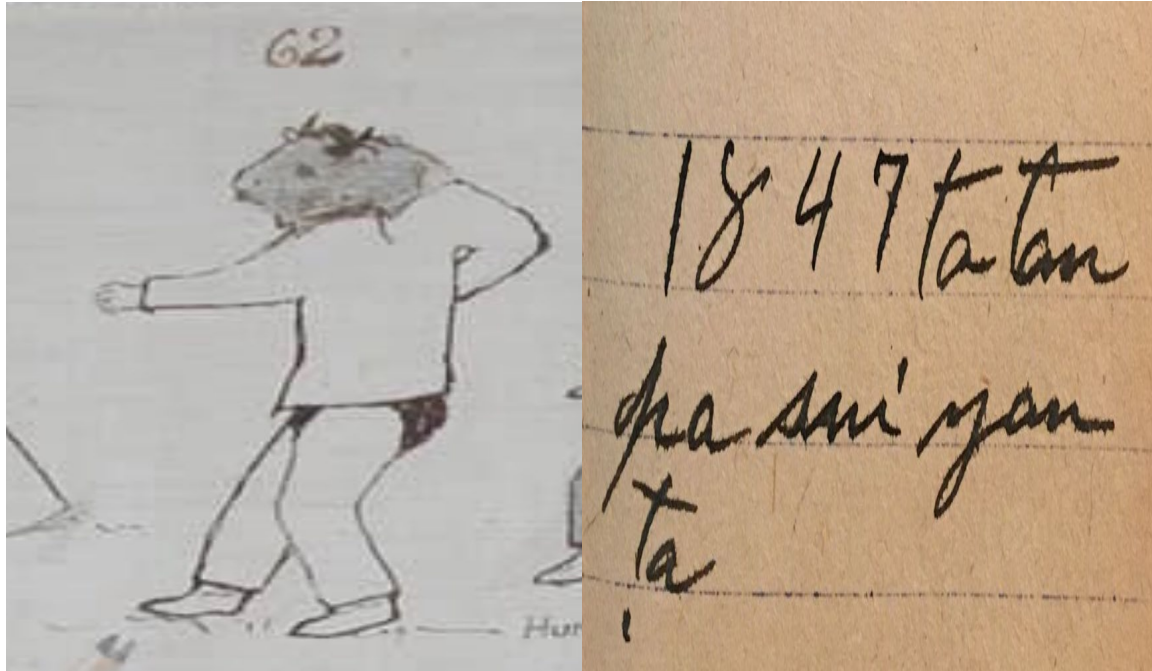 62
Hun
1847 ta tan
pa sni yan
ta